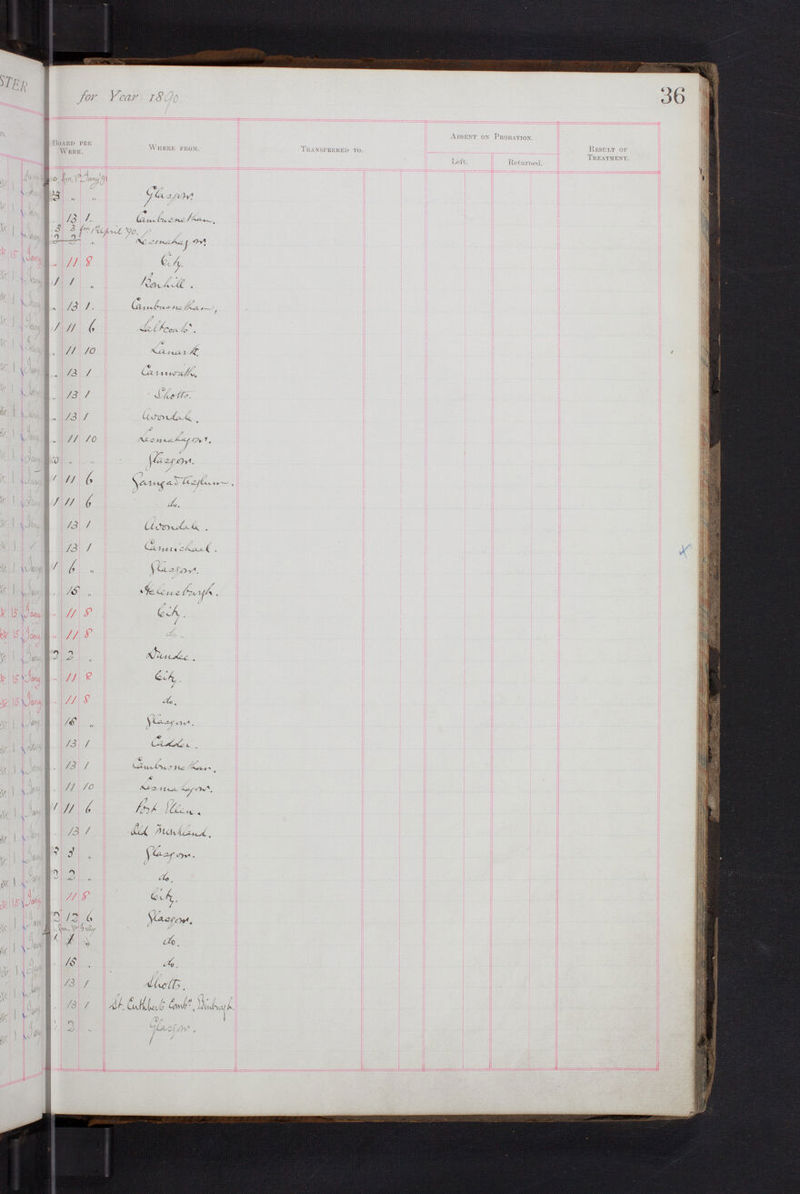 STER
for Year 1890
36
BOARD PER WEEK.
WHERE FROM.
TRANSFERRED TO.
ABSENT ON PROBATION.
Left.
Returned.
RESULT OF TREATMENT.
Glasgow
13 1 Cambusnethan.
3 3 fm 1 April '90.
2 2 Lesmahagow.
11 8 City.
1 1 . Boxhill.
13 1. Cambusnethan,
1 11 6 Saltcoats.
11 10 Lanark.
13 1 Carnwath.
13 1 Shotts.
13 1 Avondale.
11 10 Lesmahagow.
Glasgow.
1 11 6 Garngad Asylum.
1 11 6 do.
13 1 Avondale.
13 1 Carmichael.
1 6 . Glasgow.
15 . Helensburgh.
11 8 City.
11 8 do.
2 2 . Dundee.
11 8 City.
11 8 do.
15 . Glasgow.
13 1 Cadder.
13 1 Cambusnethan.
11 10 Lesmahagow.
1 11 6 Port Ellen.
13 1 Old Monkland.
2 3 . Glasgow.
2 2 . do.
11 8 City.
2 12 6 Glasgow.
1 1 . do.
15 . do.
13 1 Shotts.
13 1 St. Cuthbert's Combn., Edinburgh.
2 . Glasgow.